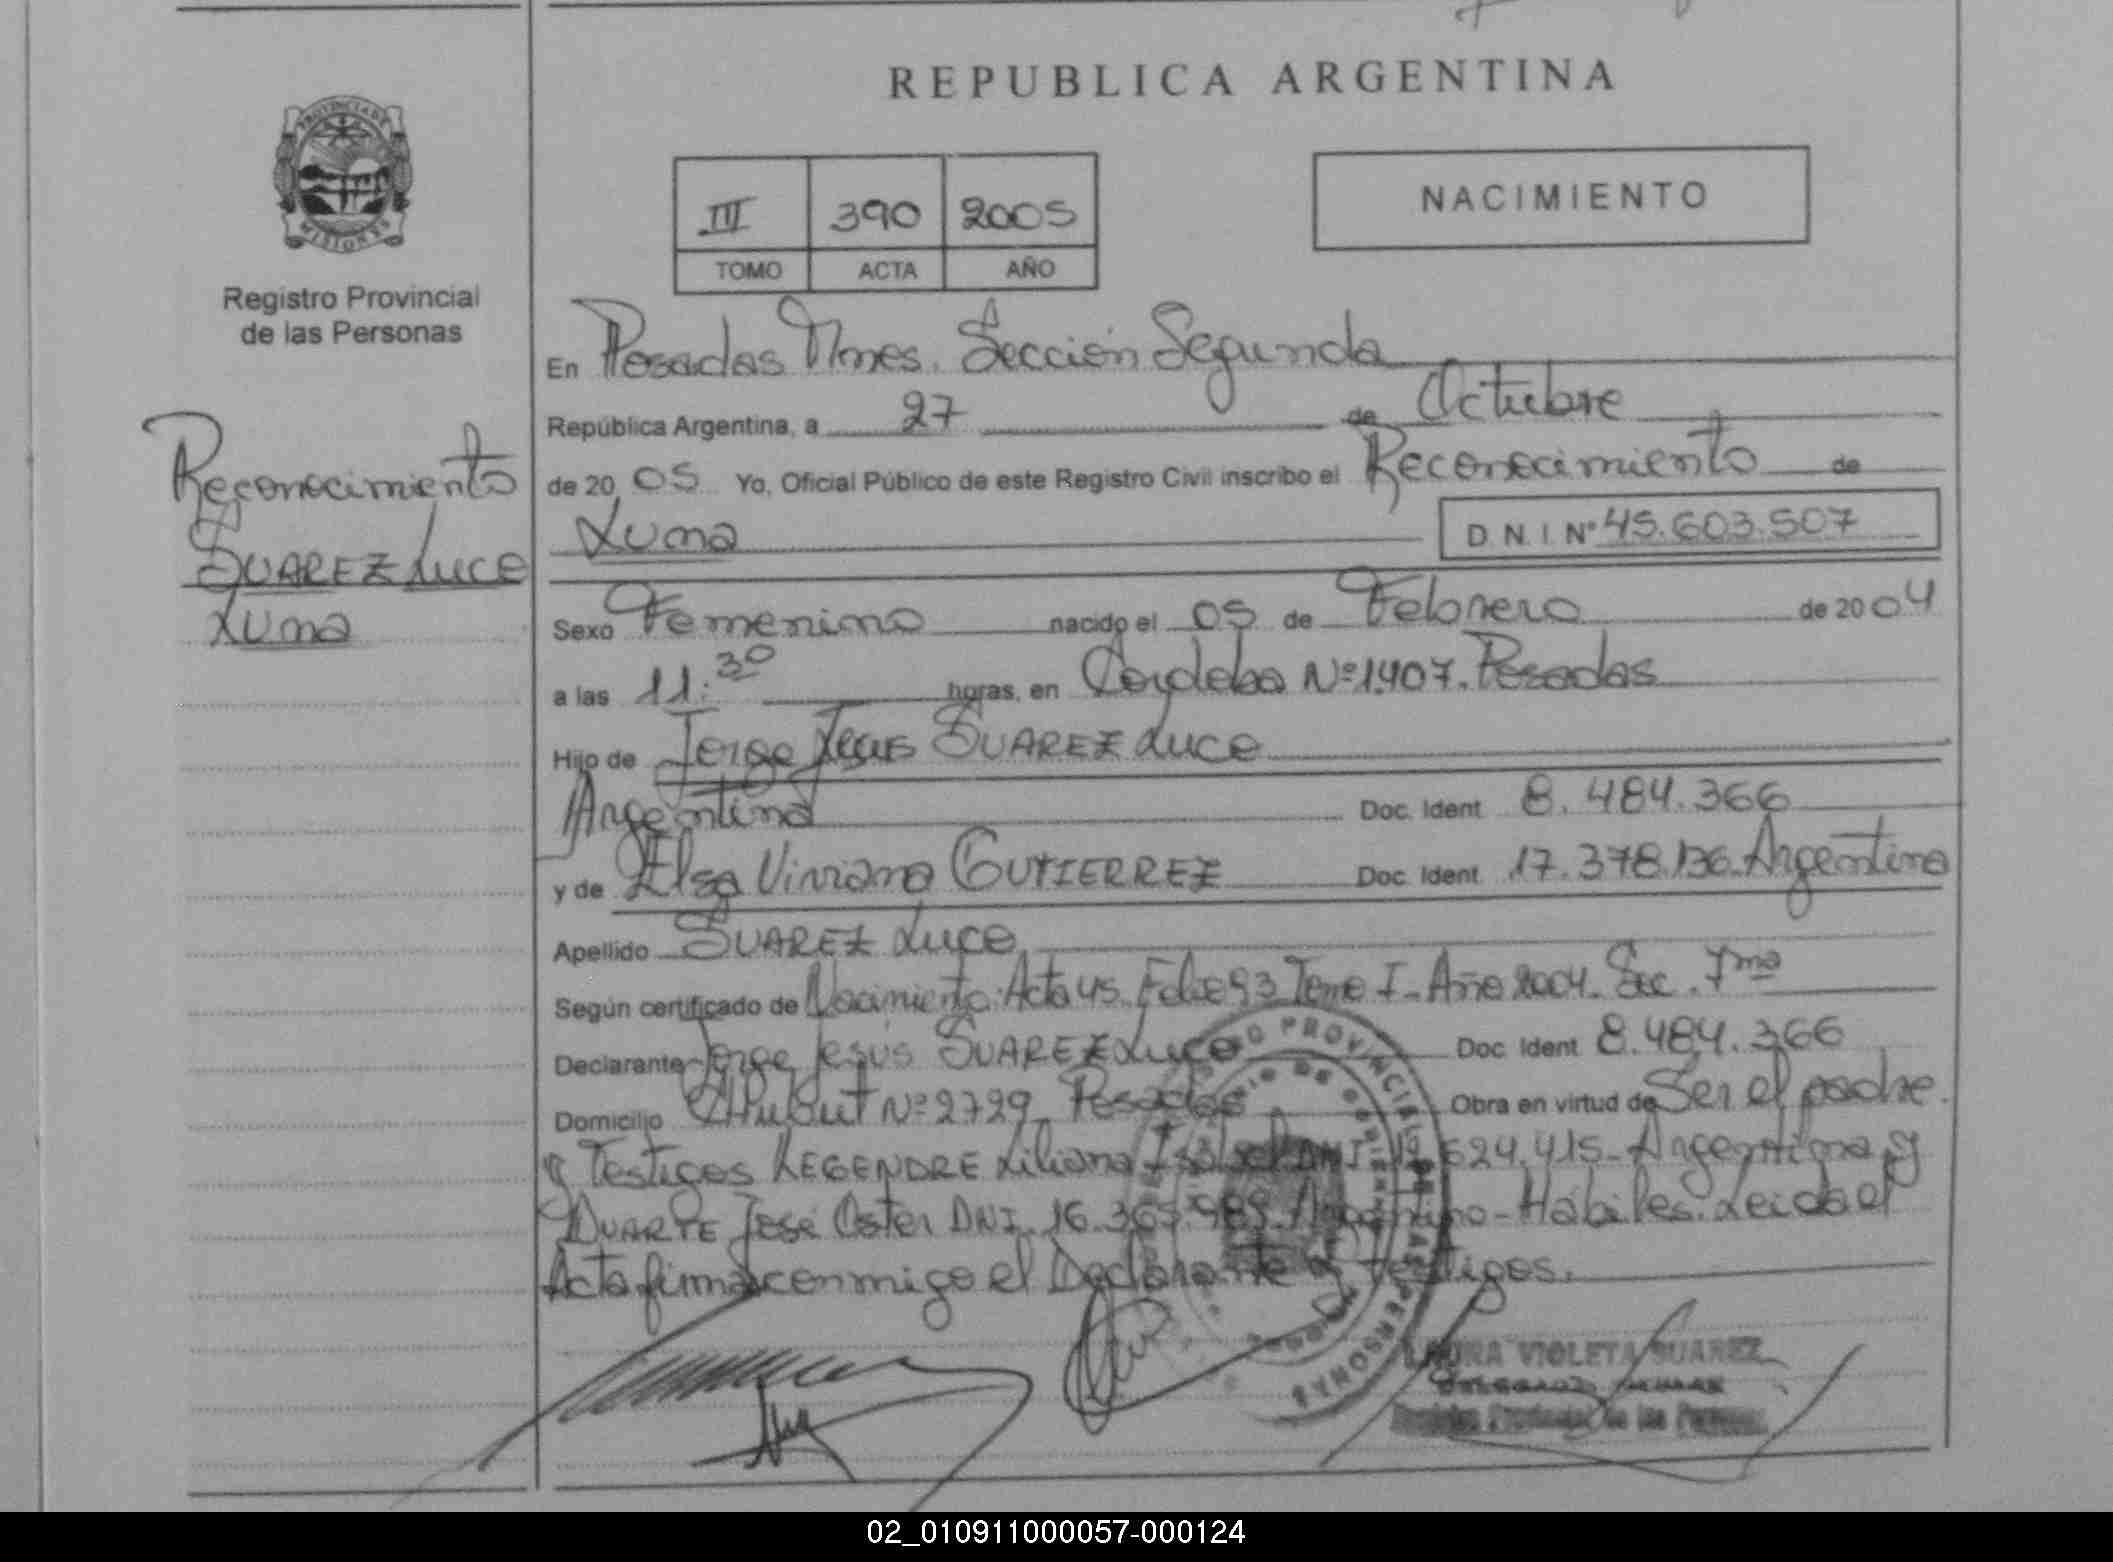 REPUBLICA ARGENTINA
PROVINCIA DE
MISIONES
Registro Provincial
de las Personas
III 390 2005
TOMO ACTA AÑO
NACIMIENTO
Reconocimiento
SUAREZ Luce
Luma
En Posadas Mnes. Sección Segunda
República Argentina, a 27 de Octubre
de 20 05 Yo, Oficial Público de este Registro Civil inscribo el Reconocimiento de
Luma D.N.I. Nº 45.603.507
Sexo Femenino nacido el 05 de Febrero de 2004
a las 11:30 horas, en Cordoba Nº 1.407. Posadas
Hijo de Jorge Jesus SUAREZ Luce
Argentino Doc. Ident. 8.484.366
y de Elsa Viviana GUTIERREZ Doc. Ident. 17.378.136 Argentina
Apellido SUAREZ Luce
Según certificado de Nacimiento: Acta 45 Folio 93 Tomo I - Año 2004. Sec. 7ma
Declarante Jorge Jesus SUAREZ Luce Doc. Ident. 8.484.366
Domicilio Chubut Nº 2729 Posadas Obra en virtud de Ser el padre.
y Testigos LEGENDRE Liliana Isabel DNI 624.415 - Argentina y
DUARTE José Oster DNI. 16.365.985 Argentino - Hábiles. Leida el
Acta firma conmigo el Declarante y testigos.
REGISTRO PROVINCIAL DE LAS PERSONAS
LAURA VIOLETA SUAREZ
Registro Provincial de las Personas
02_010911000057-000124